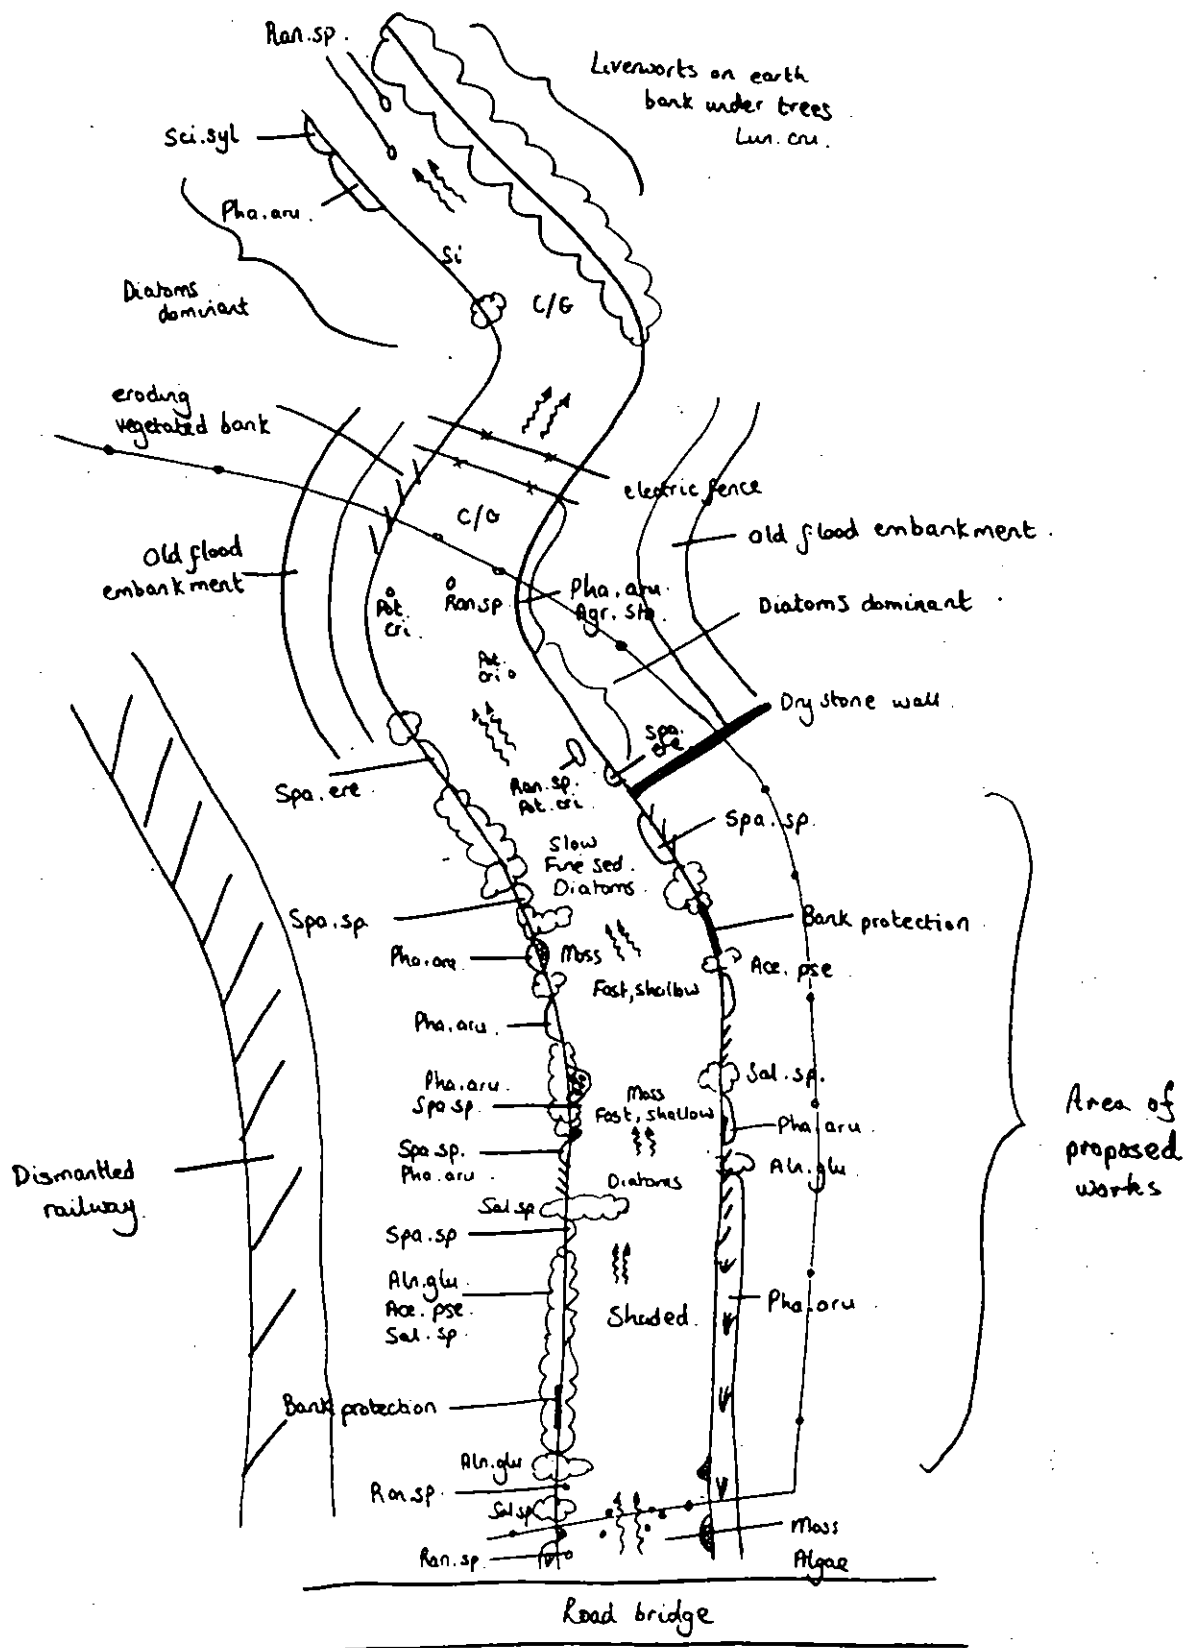 Ran.sp.
Liverworts on earth
bank under trees
Lun. cru.
Sci.syl
Pha.aru.
Si
Diatoms
dominant
C/G
eroding
vegetated bank
electric fence
C/G
Old flood embankment.
Old flood
embankment
Pot.
cri.
Ran.sp.
Pha.aru.
Agr. sto.
Diatoms dominant.
Pot.
cri
Dry stone wall.
Spa.
ere
Spa.ere
Ran.sp.
Pot.cri
Spa.sp.
Slow
Fine sed.
Diatoms
Spa.sp
Bank protection
Pha.are
Moss
Ace.pse
Fast, shallow
Pha.aru
Pha.aru
Spa.sp.
Moss
Fast, shallow
Sal.sp.
Pha.aru
Area of
proposed
works
Spa.sp.
Pha.aru
Aln.glu
Dismantled
railway.
Diatoms
Sal.sp
Spa.sp
Aln.glu
Ace.pse.
Sal.sp.
Shaded.
Pha.aru
Bank protection
Aln.glu
Ran.sp.
Sal.sp
Moss
Algae
Ran.sp.
Road bridge